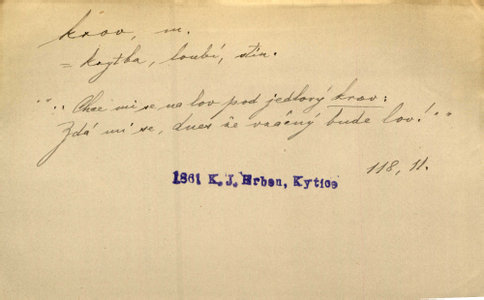 krov, m.
= krytba, loubí, stín.
"": Chce mi se na lov pod jedlový krov:
Zdá mi se, dnes že vzácný bude lov!""
118, 11.
1861 K. J. Erben, Kytice